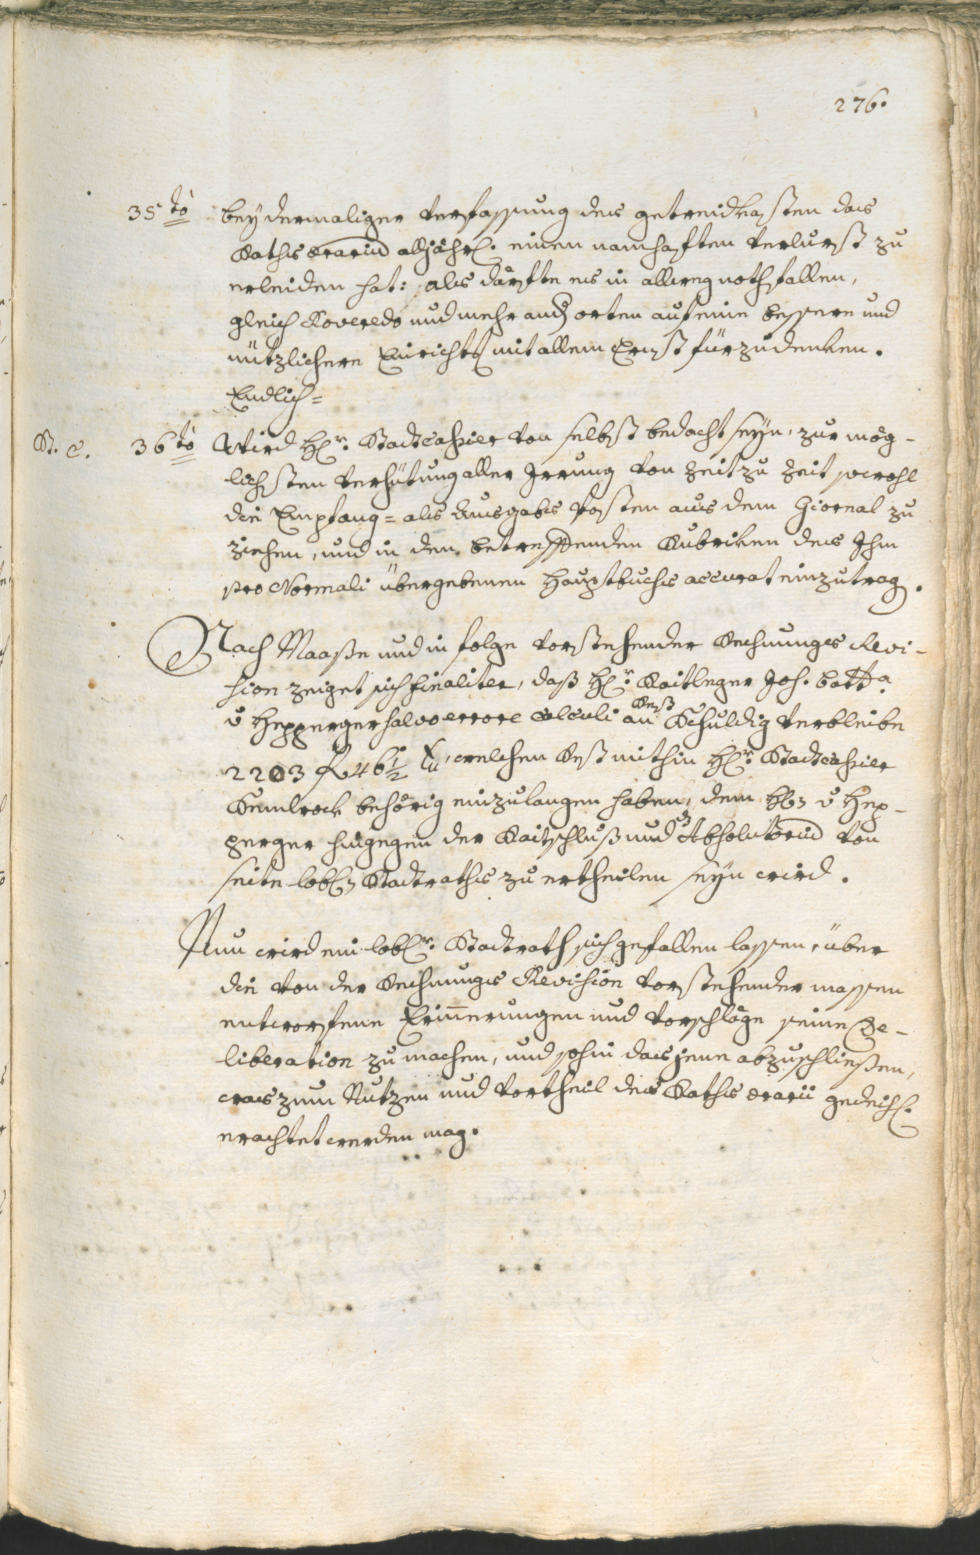 276.
35tö bey dermaliger Verfassung des getreidkasten das
Raths Ærariũ alljährl. einen namhaften Verlurst zu
erleiden hat: als därfte es in allweg nothfallen,
gleich Roveredo und mehr and orten auf eine bessere und
nützlichere Einricht mit allem Ernst fürzudenken.
Endlich=
St. C. 36tö Wird Hr. Stadtcassier von selbst bedacht seyn, zur mög-
lichsten Verhütung aller Irrung von Zeit zu Zeit sowohl
die Empfang= als Ausgabs Posten aus dem Giornal zu
ziehen, und in den betreffenden Rubriken des Ihm
pro Normali übergebenen Hauptbuchs accurat einzutrag.
Nach Maaße und in folge vorstehender Rechnungs Revi-
sion zeiget sich finaliter, daß Hr. Raitleger Joh. Batta
v Hepperger salvo errore calculi an Rest Schuldig verbleibe
2203 f 46 1/2 x, welchen Rest mithin Hr. Stadtcassier
behörig einzulangen haben, dem H v Hep-
perger hingegen der Raitschluß und Absolutoriũ von
seite löbl Stadtraths zu ertheilen seyn wird.
Nun wird ein löblr. Stadtrath sich gefallen lassen, über
die von der Rechnungs Revision vorstehender massen
entworfene Erinnerungen und Vorschläge seine De-
liberation zu machen, und sohin das jene abzuschließen,
was zum Nutzen und Vortheil des Raths Ærarii gedeihl.
erachtet werden mag.